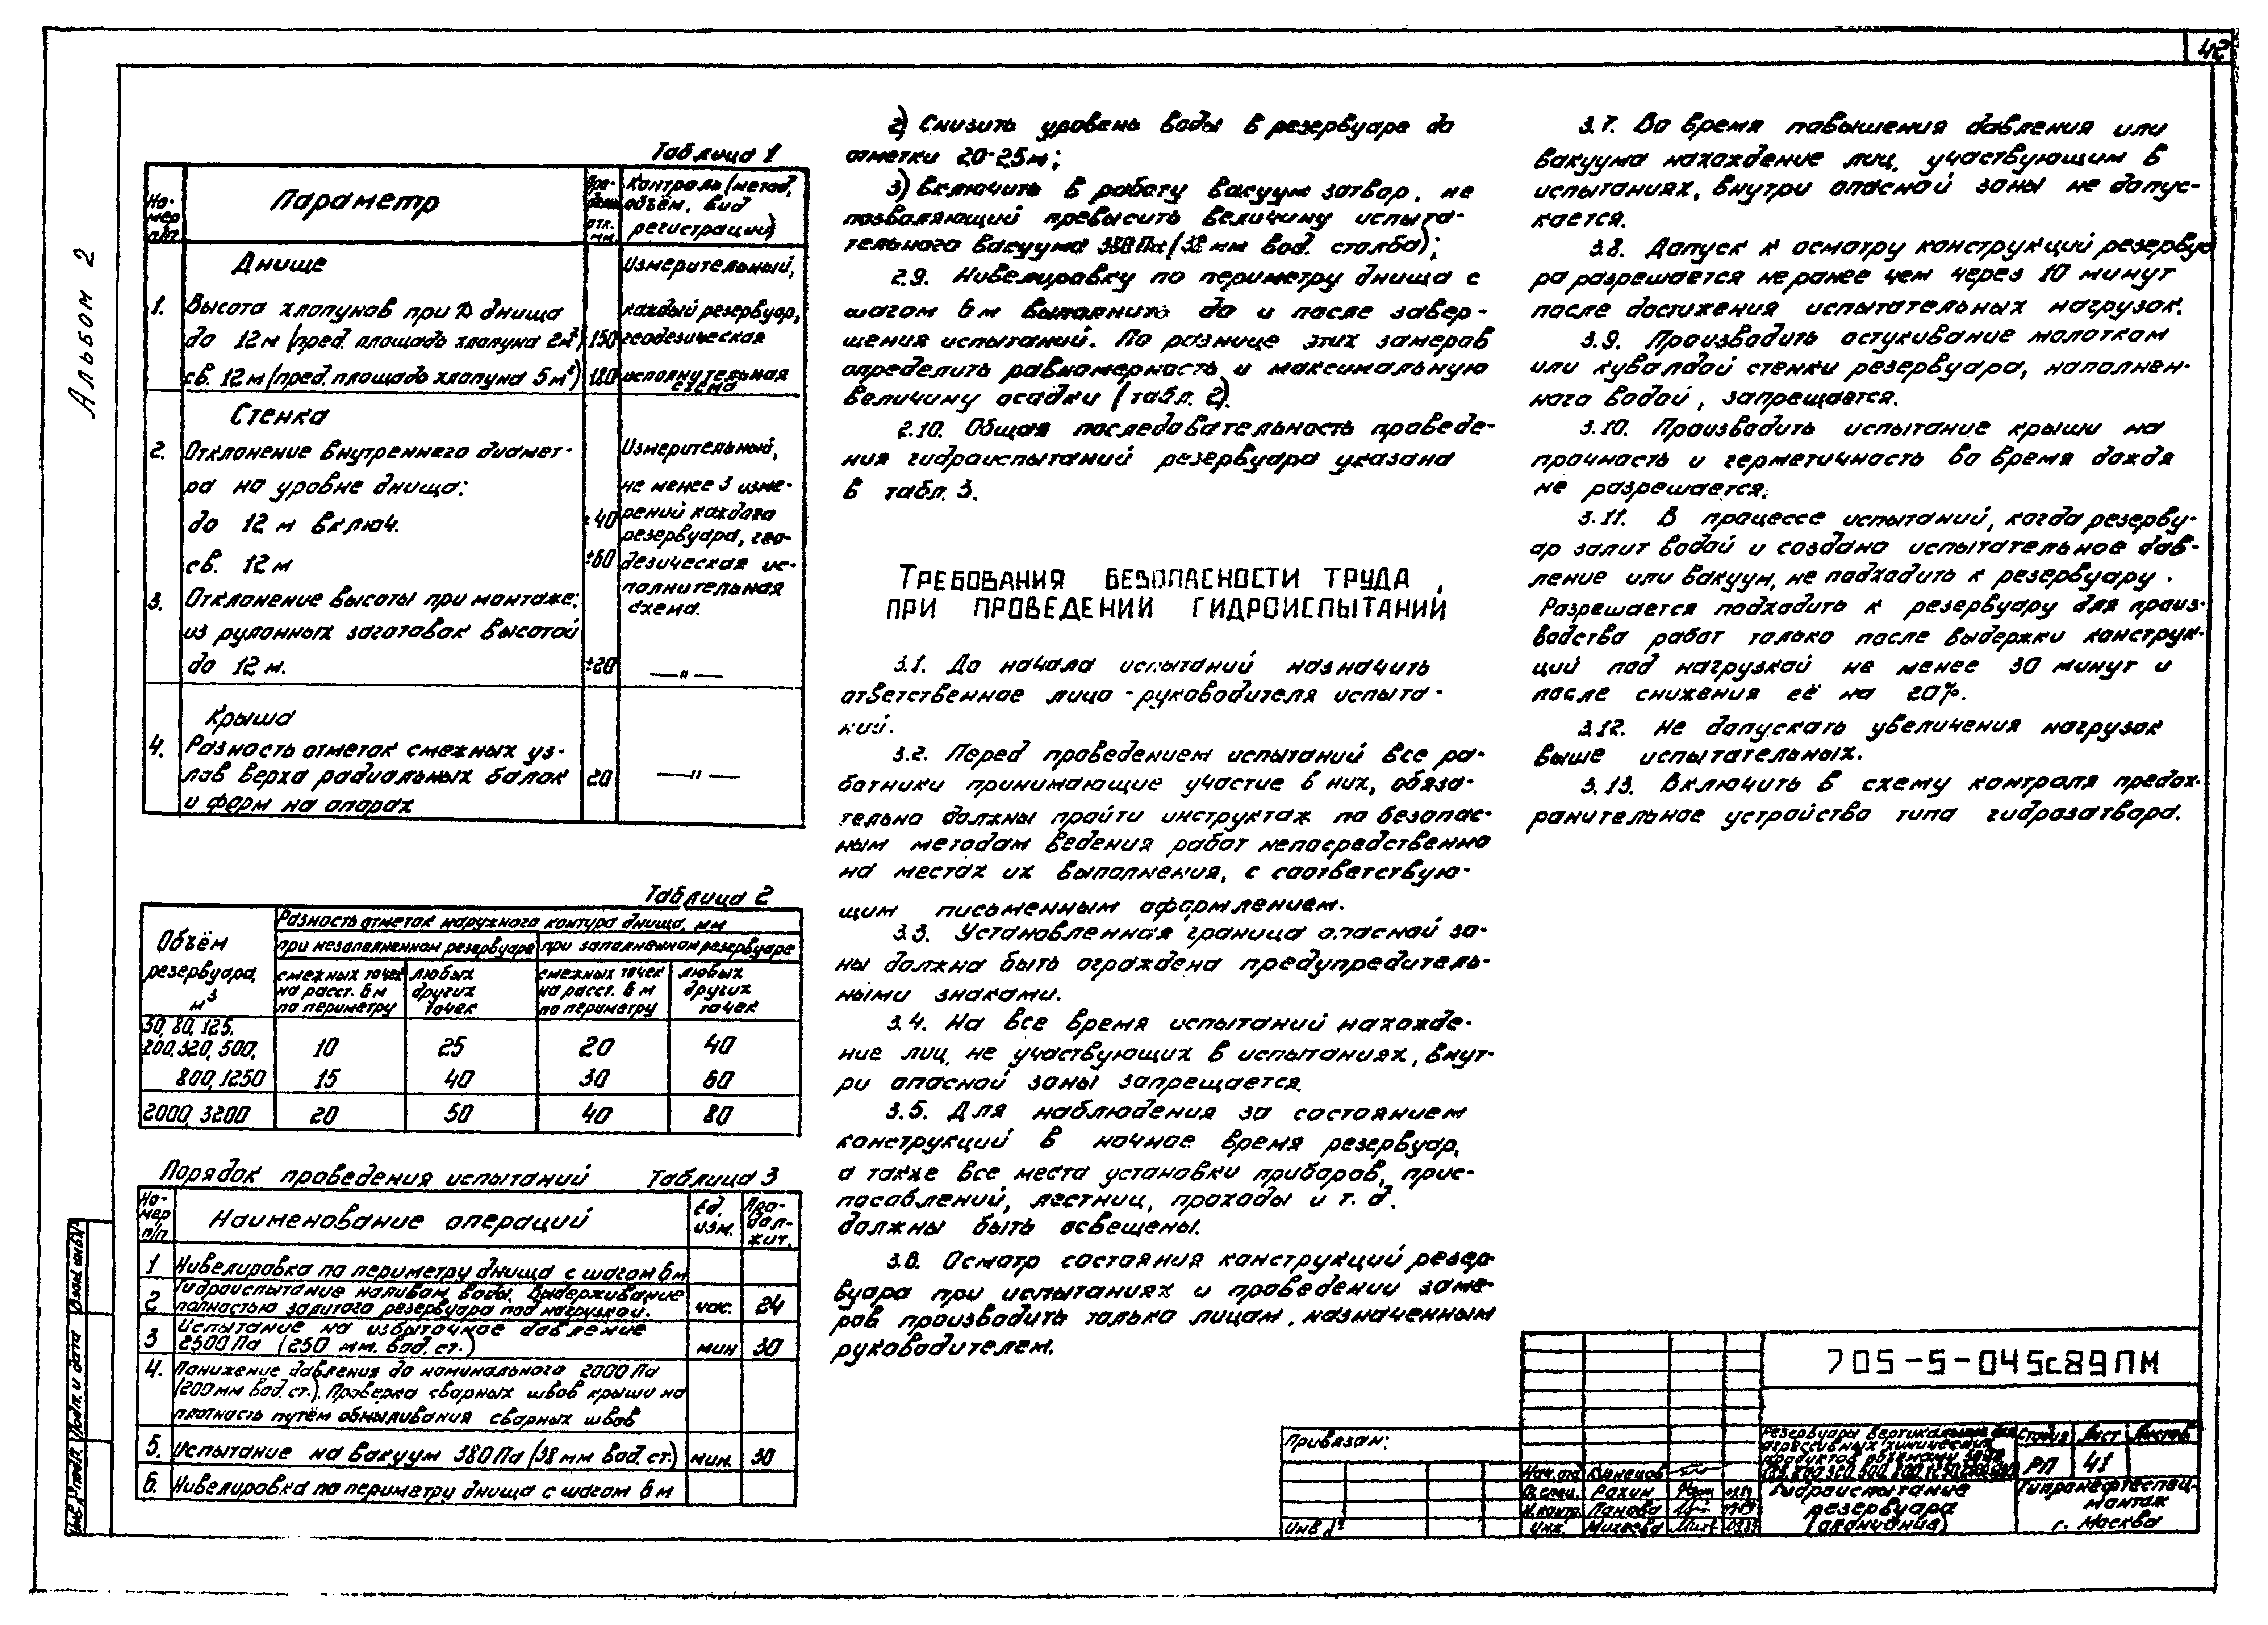 42
Альбом 2
Таблица 1
Номер п/п
Параметр
Пред. откл. мм
Контроль (метод, объём, вид регистрации)
Днище
Измерительный,
1. Высота хлопунов при D днища
каждый резервуар,
до 12 м (пред. площадь хлопуна 2м²) 150 геодезическая
св. 12 м (пред. площадь хлопуна 5 м²) 180 исполнительная схема
Стенка
2. Отклонение внутреннего диамет-
ра на уровне днища:
до 12 м включ. ±40
св. 12 м ±60
Измерительный,
не менее 3 изме-
рений каждого
резервуара, гео-
дезическая ис-
полнительная
схема.
3. Отклонение высоты при монтаже:
из рулонных заготовок высотой
до 12 м. ±20 —"—
Крыша
4. Разность отметок смежных уз-
лов верха радиальных балок 20 —"—
и ферм на опорах
Таблица 2
Объём резервуара, м³
Разность отметок наружного контура днища, мм
при незаполненном резервуаре при заполненном резервуаре
смежных точек на расст. 6 м по периметру
любых других точек
смежных точек на расст. 6 м по периметру
любых других точек
50, 80, 125,
200, 320, 500, 10 25 20 40
800, 1250 15 40 30 60
2000, 3200 20 50 40 80
Порядок проведения испытаний Таблица 3
Номер п/п
Наименование операций
Ед. изм.
Продолжит.
1 Нивелировка по периметру днища с шагом 6м
2 Гидроиспытание наливом воды. Выдерживание
полностью залитого резервуара под нагрузкой. час. 24
3 Испытание на избыточное давление
2500 Па (250 мм. вод. ст.) мин 30
4. Понижение давления до номинального 2000 Па
(200 мм вод. ст.). Проверка сварных швов крыши на
плотность путём обмыливания сварных швов
5. Испытание на вакуум 380 Па (38 мм вод. ст.) мин. 30
6. Нивелировка по периметру днища с шагом 6 м
2) Снизить уровень воды в резервуаре до
отметки 20-25м;
3) Включить в работу вакуум затвор, не
позволяющий превысить величину испыта-
тельного вакуума 380 Па (38 мм вод. столба);
2.9. Нивелировку по периметру днища с
шагом 6 м выполнить до и после завер-
шения испытаний. По разнице этих замеров
определить равномерность и максимальную
величину осадки (табл. 2).
2.10. Общая последовательность проведе-
ния гидроиспытаний резервуара указана
в табл. 3.
Требования безопасности труда,
при проведении гидроиспытаний
3.1. До начала испытаний назначить
ответственное лицо - руководителя испыта-
ний.
3.2. Перед проведением испытаний все ра-
ботники принимающие участие в них, обяза-
тельно должны пройти инструктаж по безопас-
ным методам ведения работ непосредственно
на местах их выполнения, с соответствую-
щим письменным оформлением.
3.3. Установленная граница опасной зо-
ны должна быть ограждена предупредитель-
ными знаками.
3.4. На все время испытаний нахожде-
ние лиц, не участвующих в испытаниях, внут-
ри опасной зоны запрещается.
3.5. Для наблюдения за состоянием
конструкций в ночное время резервуар,
а также все места установки приборов, прис-
пособлений, лестниц, проходы и т. д.
должны быть освещены.
3.6. Осмотр состояния конструкций резер-
вуара при испытаниях и проведении заме-
ров производить только лицам, назначенным
руководителем.
3.7. Во время повышения давления или
вакуума нахождение лиц, участвующим в
испытаниях, внутри опасной зоны не допус-
кается.
3.8. Допуск к осмотру конструкций резервуа
ра разрешается не ранее чем через 10 минут
после достижения испытательных нагрузок.
3.9. Производить остукивание молотком
или кувалдой стенки резервуара, наполнен-
ного водой, запрещается.
3.10. Производить испытание крыши на
прочность и герметичность во время дождя
не разрешается.
3.11. В процессе испытаний, когда резерву-
ар залит водой и создано испытательное дав-
ление или вакуум, не подходить к резервуару.
Разрешается подходить к резервуару для произ-
водства работ только после выдержки конструк-
ций под нагрузкой не менее 30 минут и
после снижения её на 20%.
3.12. Не допускать увеличения нагрузок
выше испытательных.
3.13. Включить в схему контроля предох-
ранительное устройство типа гидрозатвора.
Инв. № подл. Подп. и дата Взам. инв. №
Привязан:
Инв. №
705-5-045с.89ПМ
Нач. отд. Кузнецов
Гл. спец. Рахин
Н. контр. Панова
Инж. Михеева
Резервуары вертикальные для
агрессивных химических
продуктов объемами 50,80
Стадия Лист Листов
РП 41
Гидроиспытание
резервуара
(окончание)
Гипронефтеспец-
монтаж
г. Москва